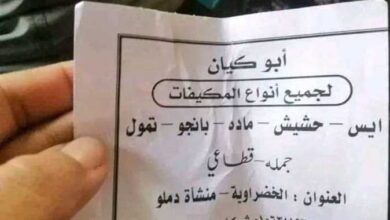 أبو كيان
لجميع أنواع المكيفات
ايس – حشيش – مادد – بانجو – تمول
جمله – قطاعي
العنوان : الخضراوية – منشأة دملو